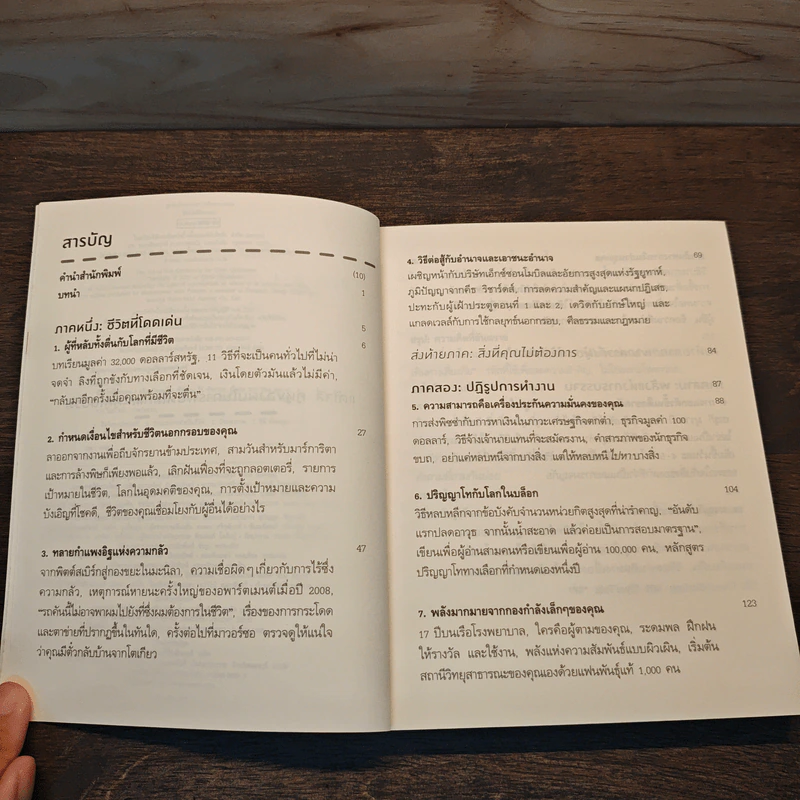 สารบัญ
คำนำสำนักพิมพ์ (10)
บทนำ 1
ภาคหนึ่ง: ชีวิตที่โดดเด่น 5
1. ผู้ที่หลับทั้งตื่นกับโลกที่มีชีวิต 6
บทเรียนมูลค่า 32,000 ดอลลาร์สหรัฐ, 11 วิธีที่จะเป็นคนทั่วไปที่ไม่น่า
จดจำ ลิงที่ถูกขังกับทางเลือกที่ชัดเจน, เงินโดยตัวมันแล้วไม่มีค่า,
“กลับมาอีกครั้งเมื่อคุณพร้อมที่จะตื่น”
2. กำหนดเงื่อนไขสำหรับชีวิตนอกกรอบของคุณ 27
ลาออกจากงานเพื่อถีบจักรยานข้ามประเทศ, สามวันสำหรับมาร์การิตา
และการล้างพิษก็เพียงพอแล้ว, เลิกฝันเฟื่องที่จะถูกลอตเตอรี่, รายการ
เป้าหมายในชีวิต, โลกในอุดมคติของคุณ, การตั้งเป้าหมายและความ
บังเอิญที่โชคดี, ชีวิตของคุณเชื่อมโยงกับผู้อื่นได้อย่างไร
3. ทลายกำแพงอิฐแห่งความกลัว 47
จากพิตต์สเบิร์กสู่กองขยะในมะนิลา, ความเชื่อผิดๆ เกี่ยวกับการไร้ซึ่ง
ความกลัว, เหตุการณ์หายนะครั้งใหญ่ของอพาร์ตเมนต์เมื่อปี 2008,
“รถคันนี้ไม่อาจพาผมไปยังที่ซึ่งผมต้องการในชีวิต”, เรื่องของการกระโดด
และตาข่ายที่ปรากฏขึ้นในทันใด, ครั้งต่อไปที่มาวอร์ซอ ตรวจดูให้แน่ใจ
ว่าคุณมีตั๋วกลับบ้านจากโตเกียว
4. วิธีต่อสู้กับอำนาจและเอาชนะอำนาจ 69
เผชิญหน้ากับบริษัทเอ็กซ์ซอนโมบิลและอัยการสูงสุดแห่งรัฐยูทาห์,
ภูมิปัญญาจากคีธ ริชาร์ดส์, การลดความสำคัญและแผนกปฏิเสธ,
ปะทะกับผู้เฝ้าประตูตอนที่ 1 และ 2, เดวิดกับยักษ์ใหญ่ และ
แกลดเวลล์กับการใช้กลยุทธ์นอกกรอบ, ศีลธรรมและกฎหมาย
ส่งท้ายภาค: สิ่งที่คุณไม่ต้องการ 84
ภาคสอง: ปฏิรูปการทำงาน 87
5. ความสามารถคือเครื่องประกันความมั่นคงของคุณ 88
การส่งพิซซ่ากับการหาเงินในภาวะเศรษฐกิจตกต่ำ, ธุรกิจมูลค่า 100
ดอลลาร์, วิธีจ้างเจ้านายแทนที่จะสมัครงาน, คำสารภาพของนักธุรกิจ
ขบถ, อย่าแค่หลบหนีจากบางสิ่ง แต่ให้หลบหนี ไปหา บางสิ่ง
6. ปริญญาโทกับโลกในบล็อก 104
วิธีหลบหลีกจากข้อบังคับจำนวนหน่วยกิตสูงสุดที่น่ารำคาญ, “อันดับ
แรกปลดอาวุธ จากนั้นน้ำสะอาด แล้วค่อยเป็นการสอบมาตรฐาน”,
เขียนเพื่อผู้อ่านสามคนหรือเขียนเพื่อผู้อ่าน 100,000 คน, หลักสูตร
ปริญญาโททางเลือกที่กำหนดเองหนึ่งปี
7. พลังมากมายจากกองกำลังเล็กๆของคุณ 123
17 ปีบนเรือโรงพยาบาล, ใครคือผู้ตามของคุณ, ระดมพล ฝึกฝน
ให้รางวัล และใช้งาน, พลังแห่งความสัมพันธ์แบบผิวเผิน, เริ่มต้น
สถานีวิทยุสาธารณะของคุณเองด้วยแฟนพันธุ์แท้ 1,000 คน